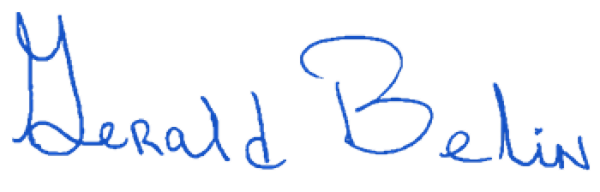 Gerald Belin